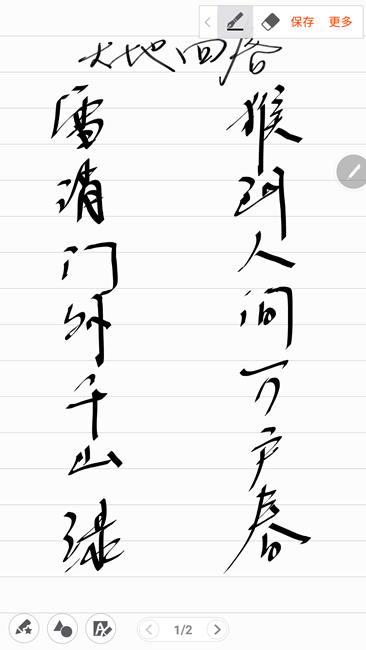 保存 更多
大地回春
雪消门外千山绿
猴到人间万户春
1/2